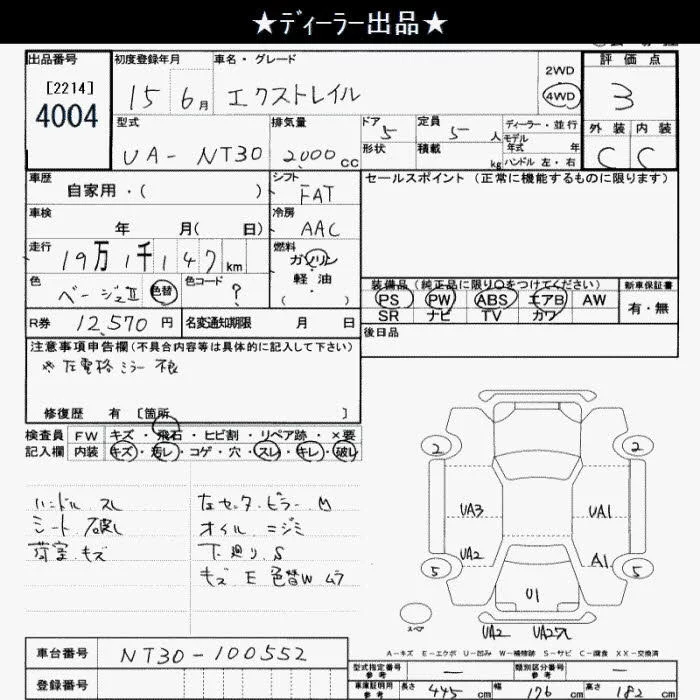 ★ディーラー出品★
出品番号 初度登録年月 車名・グレード 評価点
[2214] 4004 15 6月 エクストレイル 2WD 4WD 3
外装 内装
C C
型式 排気量 ドア 定員 ディーラー・並行
UA-NT30 2,000 cc 5 5 人 モデル年式 年
形状 積載 kg ハンドル 左・右
車歴 シフト セールスポイント (正常に機能するものに限ります)
自家用・( ) FAT
車検 冷房
年 月( 日) AAC
走行 燃料
19万1千147km ガソリン
軽油
( )
色 色コード
ベージュII 色替 ?
装備品 (純正品に限り○をつけてください) 新車保証書
PS PW ABS エアB AW 有・無
SR ナビ TV カワ
R券 12,570円 名変通知期限 月 日
後日品
注意事項申告欄(不具合内容等は具体的に記入して下さい)
※左電格ミラー不良
修復歴 有 [箇所 ]
検査員 FW キズ・飛石・ヒビ割・リペア跡・×要
記入欄 内装 キズ・汚レ・コゲ・穴・スレ・キレ・破レ
ハンドル スレ 左センターピラー M
シート 破レ オイル ニジミ
荷室 キズ 下廻り S
キズ E 色替W ムラ
2 2
UA3 UA1
UA2 A1
5 5
U1
スペア UA2 UA2穴
A-キズ E-エクボ U-凹み W-補修跡 S-サビ C-腐食 XX-交換済
車台番号 NT30-100552
型式指定番号 参考 — 類別区分番号 参考 —
登録番号
車庫証明用 参考 長さ 445 cm 幅 176 cm 高さ 182 cm